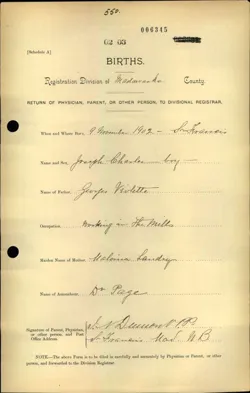 550.
006345
62 03
[Schedule A]
BIRTHS.
Registration Division of Madawaska County.
RETURN OF PHYSICIAN, PARENT, OR OTHER PERSON, TO DIVISIONAL REGISTRAR.
When and Where Born, 9 November 1902 - St Francois
Name and Sex, Joseph Charles - boy -
Name of Father, Georges Violette
Occupation, Working in the Mills
Maiden Name of Mother, Malvina Landry
Name of Accoucheur, Dr Page
Signature of Parent, Physician, or other person, and Post Office Address.
Dumont P.P.
St Francois Mad N B
NOTE.—The above Form is to be filled in carefully and accurately by Physician or Parent, or other person, and forwarded to the Division Registrar.